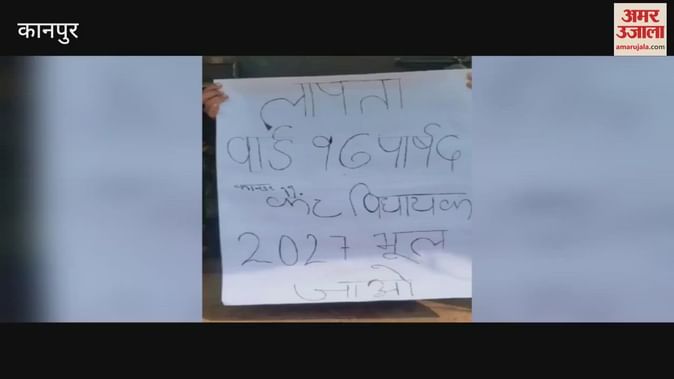 कानपुर
अमर
उजाला
amarujala.com
लापता
वार्ड १६ पार्षद
कैंट विधायक
2027 भूल
जाओ